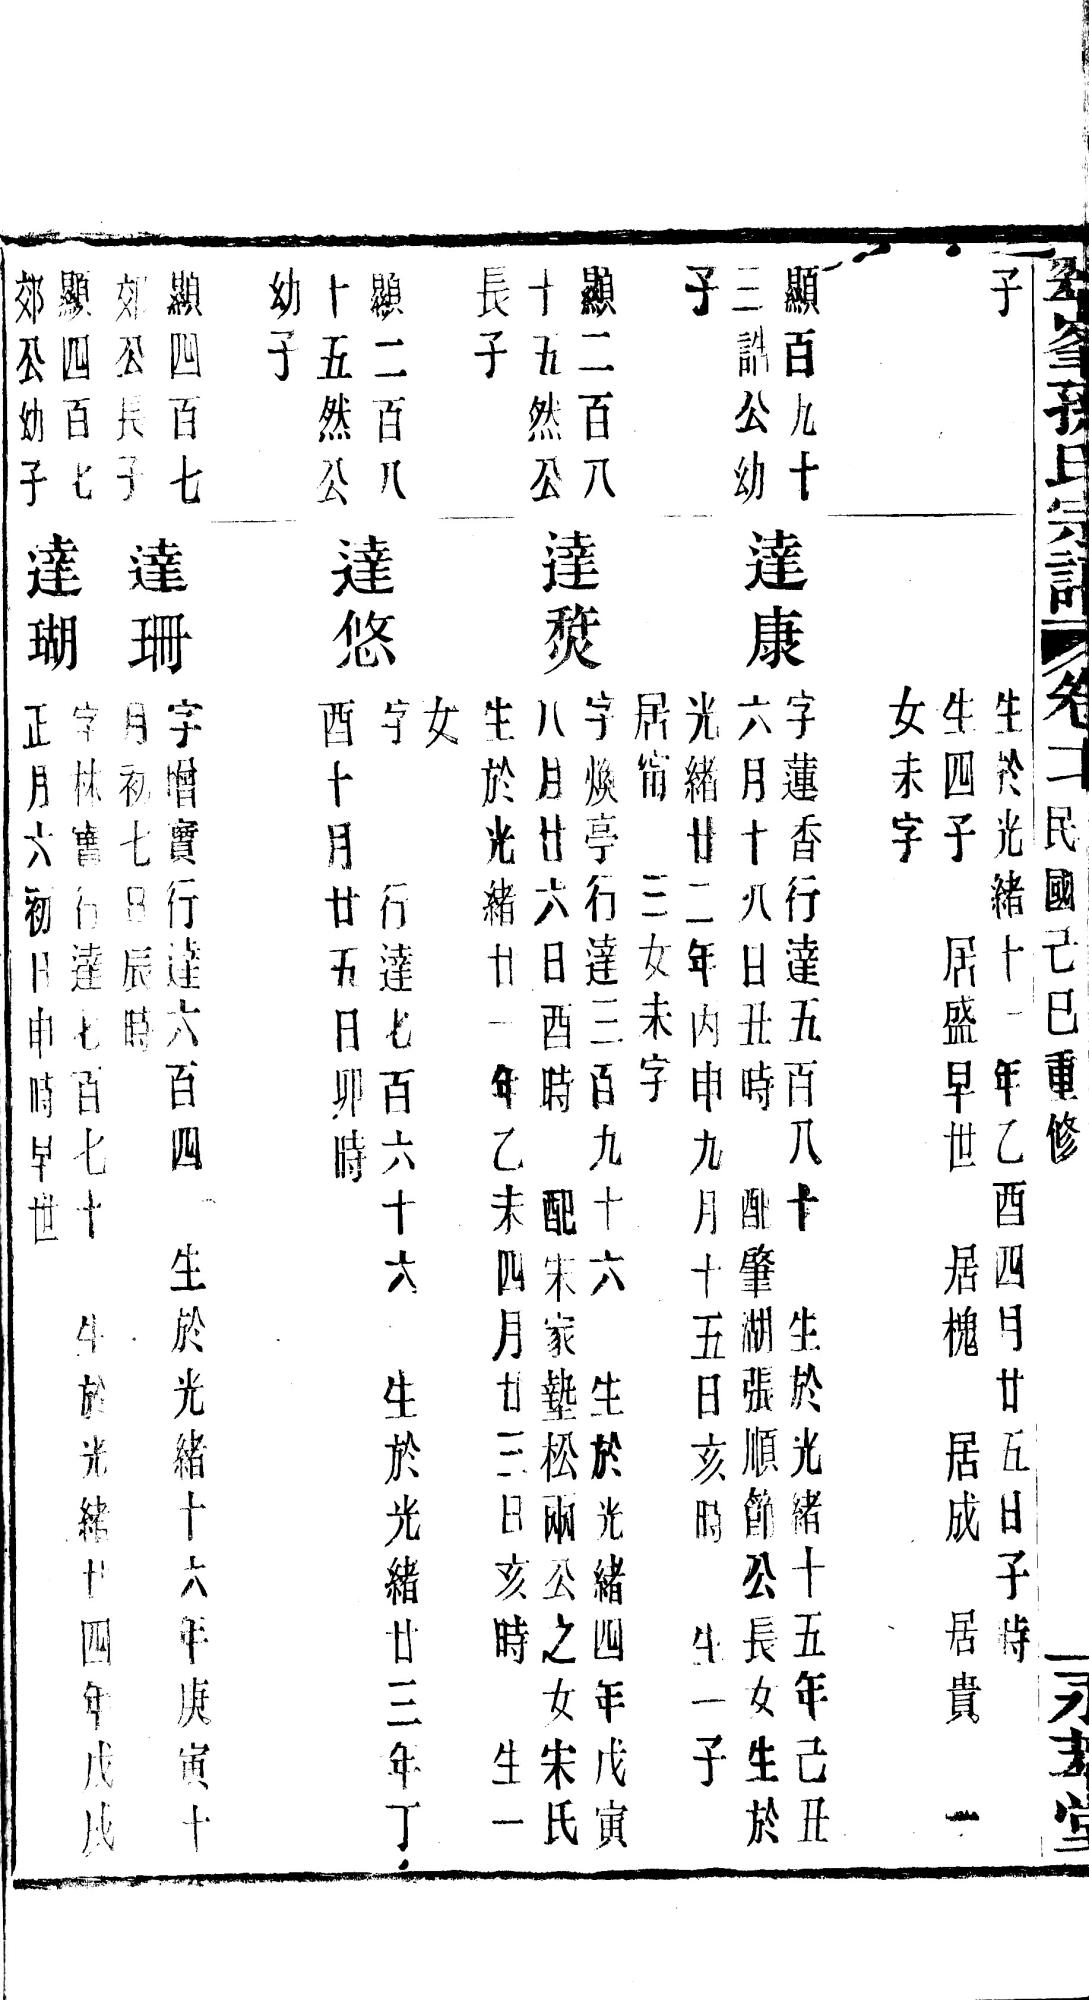 峯孫氏宗譜 卷十 民國己巳重修 永 堂
子
生於光緒十一年乙酉四月廿五日子時
生四子 居盛早世 居槐 居成 居貴 一
女未字
顯百九十
三誥公幼
子
達康
字蓮香行達五百八十 生於光緒十五年己丑
六月十八日丑時 配肇湖張順節公長女生於
光緒廿二年丙申九月十五日亥時 生一子
居甯 三女未字
顯二百八
十五然公
長子
達烎
字煥亭行達三百九十六 生於光緒四年戊寅
八月廿六日酉時 配宋家墊松兩公之女宋氏
生於光緒廿一年乙未四月廿三日亥時 生一
女
顯二百八
十五然公
幼子
達悠
字 行達七百六十六 生於光緒廿三年丁
酉十月廿五日卯時
顯四百七
郊公長子
達珊
字增寶行達六百四 生於光緒十六年庚寅十
月初七日辰時
顯四百七
郊公幼子
達瑚
字林寶行達七百七十 生於光緒廿四年戊戌
正月六初日申時早世